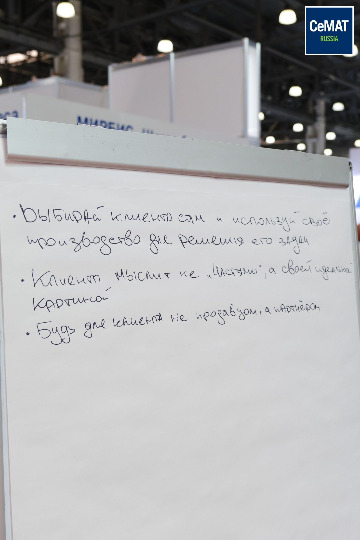 CeMAT
RUSSIA
МИРБИС
• Выбирай клиента сам и используй своё
производство для решения его задач
• Клиент мыслит не „частями“, а своей идеальной
картиной
• Будь для клиента не продавцом, а партнёром